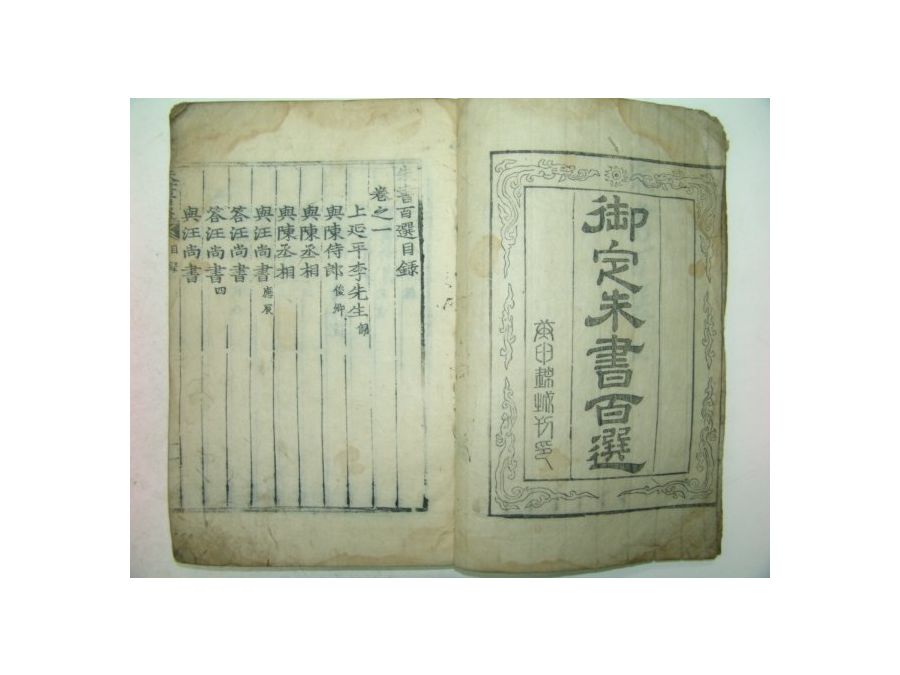 御定朱書百選
庚申錦城刊印
朱書百選目錄
卷之一
上延平李先生
與陳侍郎俊卿
與陳丞相
與陳丞相
與汪尚書應辰
答汪尚書
答汪尚書四
與汪尚書
目錄